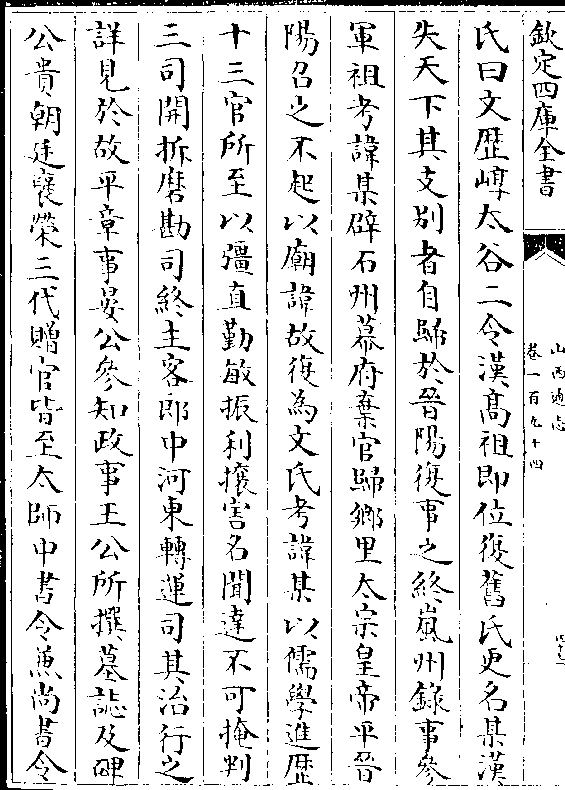 欽定四庫全書
山西通志
卷一百九十四
氏曰文歴崞太谷二令漢髙祖即位復舊氏更名某漢
失天下其支别者自歸於晉陽復事之終嵐州錄事參
軍祖考諱某辟石州幕府棄官歸鄉里太宗皇帝平晉
陽召之不起以廟諱故復為文氏考諱某以儒學進歴
十三官所至以彊直勤敏振利㨿害名聞達不可掩判
三司開拆磨勘司終主客郎中河東轉運司其治行之
詳見於故平章事晏公參知政事王公所撰墓誌及碑
公貴朝廷襃榮三代贈官皆至太師中書令兼尚書令